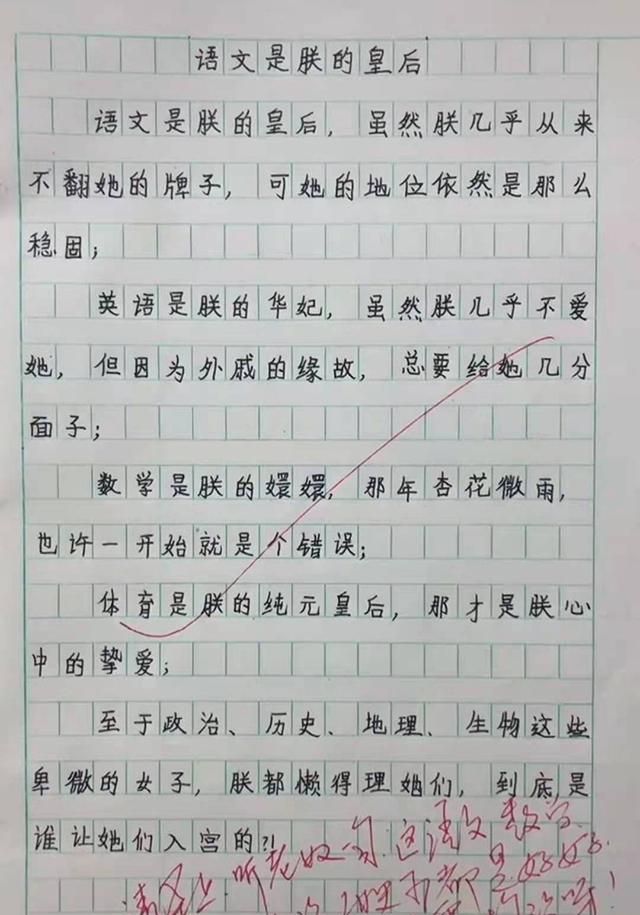 语文是朕的皇后
语文是朕的皇后，虽然朕几乎从来
不翻她的牌子，可她的地位依然是那么
稳固；
英语是朕的华妃，虽然朕几乎不爱
她，但因为外戚的缘故，总要给她几分
面子；
数学是朕的嬛嬛，那年杏花微雨，
也许一开始就是个错误；
体育是朕的纯元皇后，那才是朕心
中的挚爱；
至于政治、历史、地理、生物这些
卑微的女子，朕都懒得理她们，到底是
谁让她们入宫的?!
听老奴一句 这语文 数学
都是好好